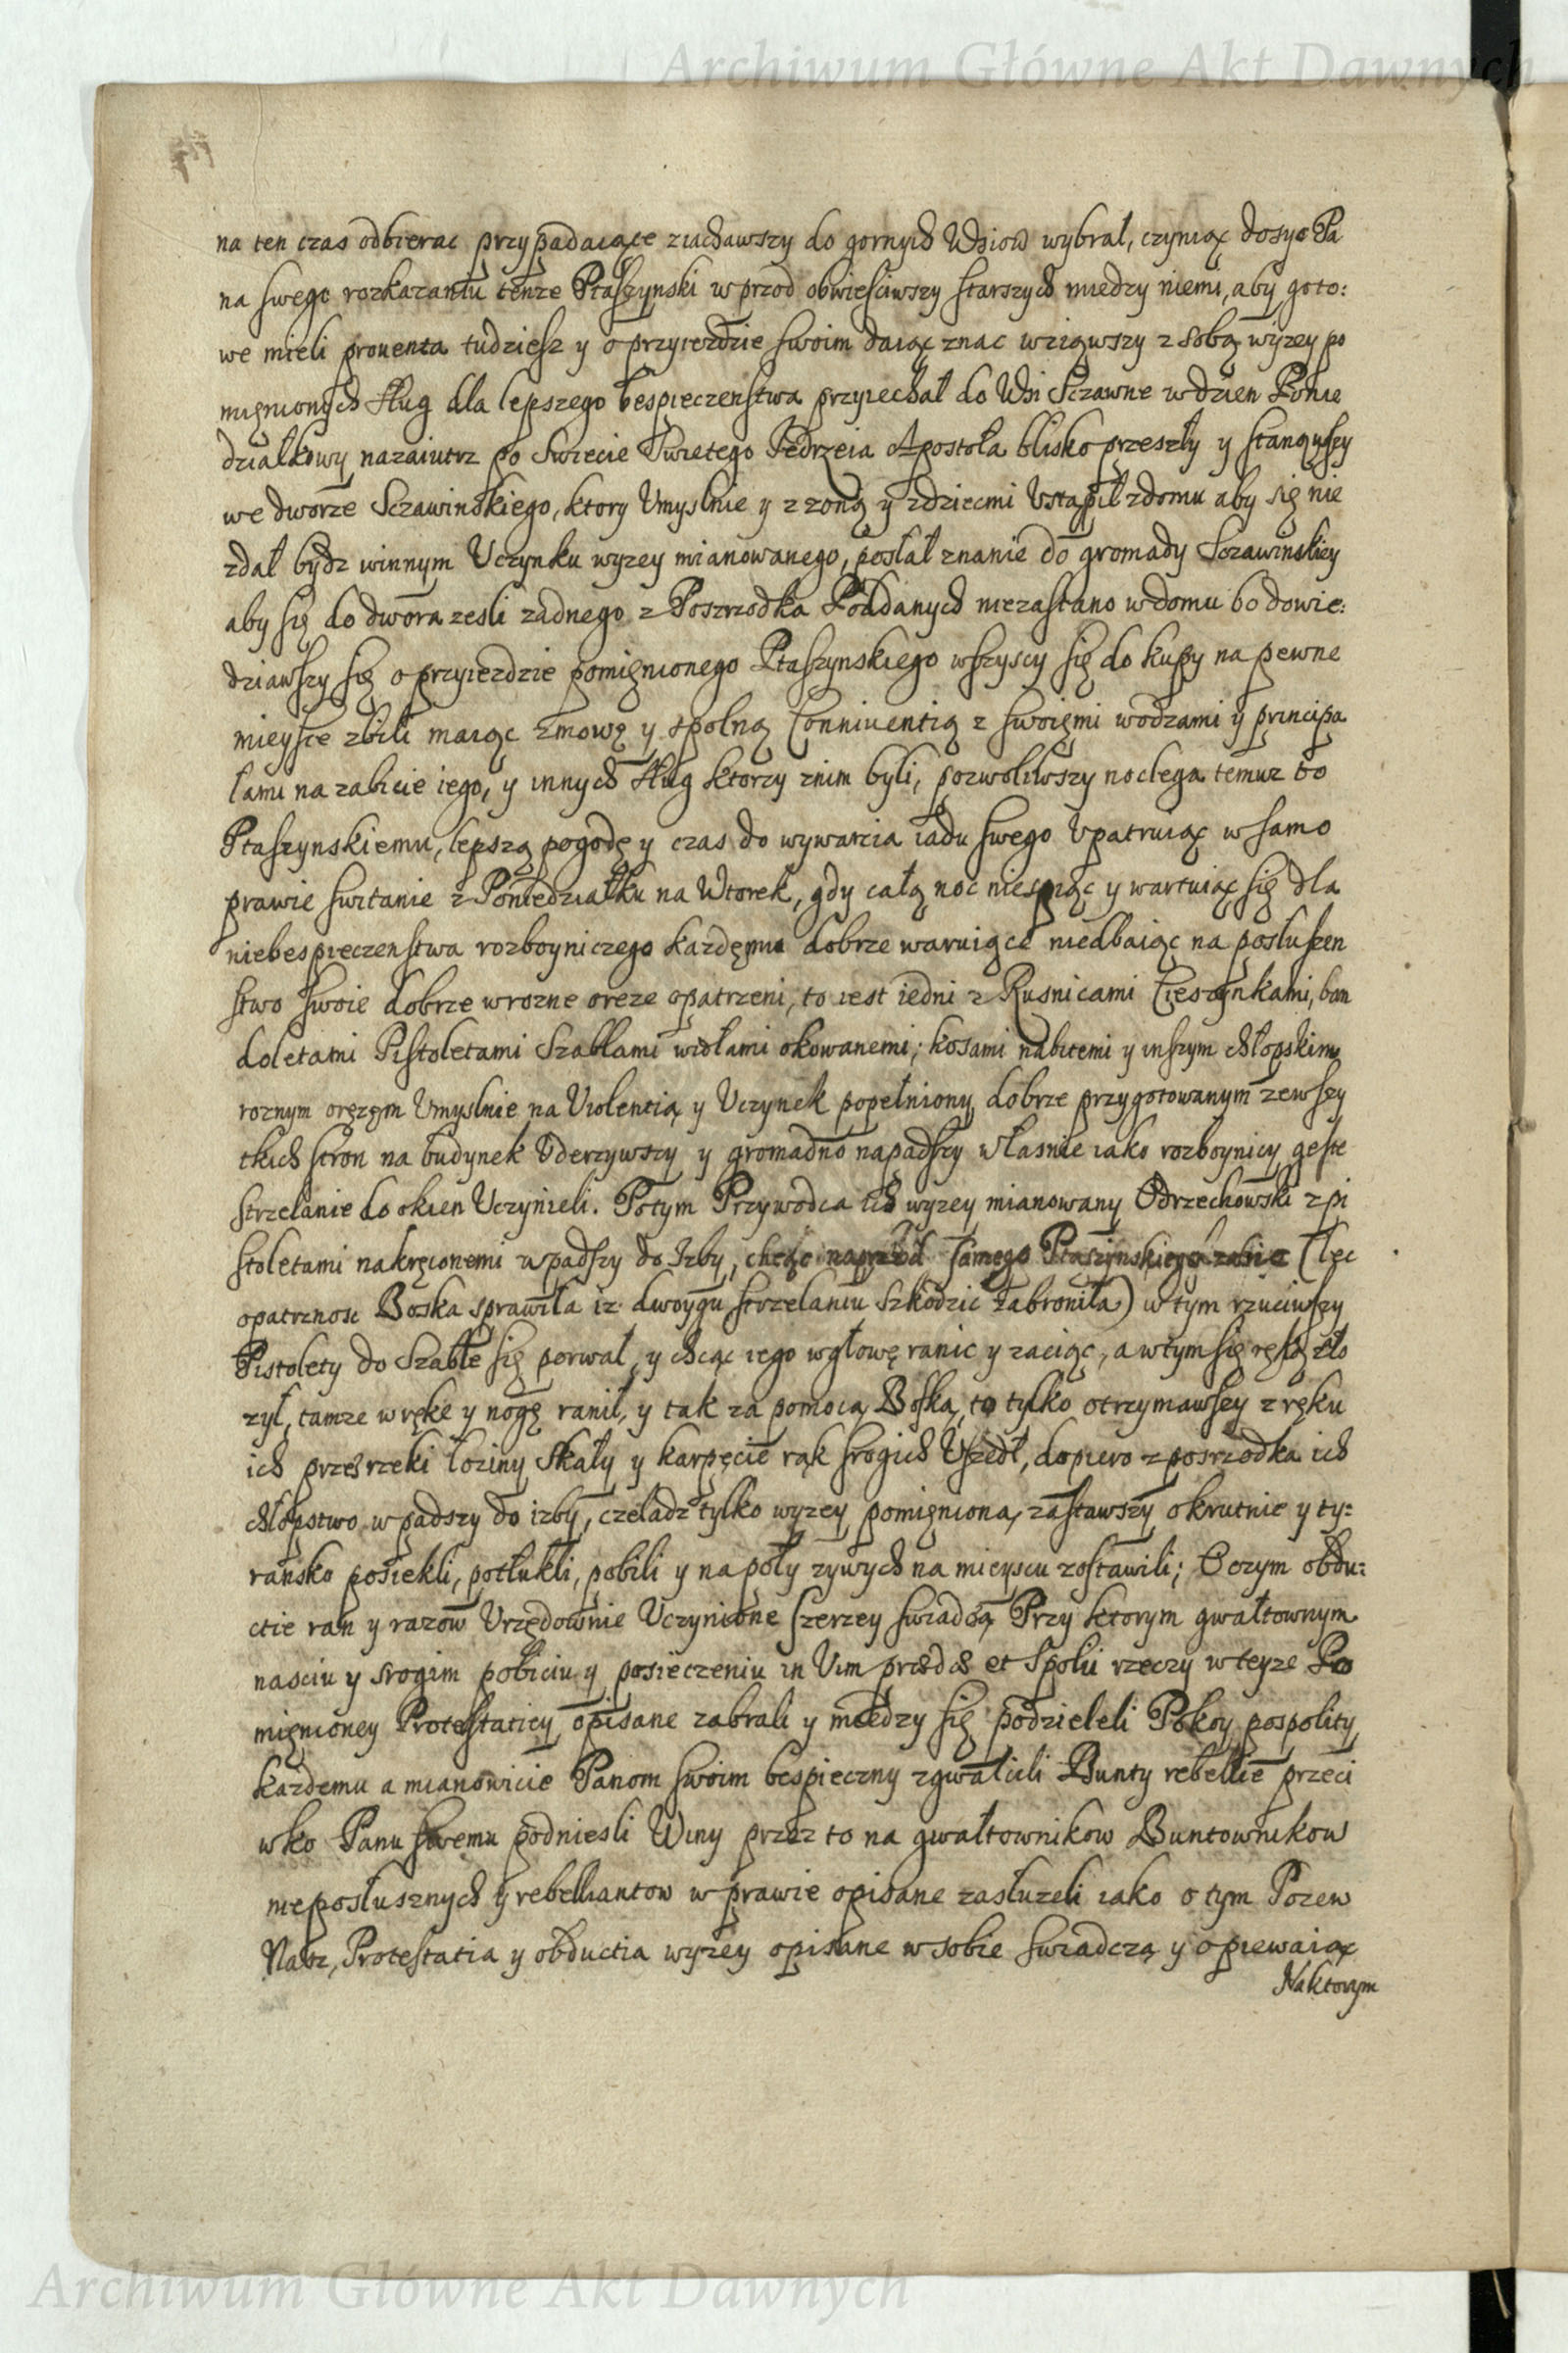 Archiwum Główne Akt Dawnych
na ten czas odbierac przypadaiące ziachawszy do gornych Wsiow wybrał, czyniąc dosyc Pa
na swego rozkazaniu tenze Ptaszynski wprzod obwiesciwszy starszych miedzy niemi, aby goto:
we mieli prouenta tudziesz y o przyiezdzie swoim daiąc znac wziąwszy z sobą wyzey po
mięnionych sług dla lepszego bespieczenstwa przyiechał do Wsi Sczawne w dzien Ponie
działkowy nazaiutrz po Swiecie Swietego Jędrzeia Apostoła blisko przeszły y stanąwszy
we dworze Sczawinskiego, ktory Umyslnie y z zoną y z dziecmi Ustąpił z domu aby się nie
zdał bydz winnym Uczynku wyzey mianowanego, posłał znanie do gromady Sczawinskiey
aby się do dwora zesli zadnego z Poszrzodka Poddanych niezastano w domu bo dowie:
dziawszy się o przyiezdzie pomięnionego Ptaszynskiego wszyscy się do kupy na pewne
mieysce zbili maiąc zmowę y spolną Conniuentią z swoięmi wodzami y principa
lami na zabicie iego, y innych sług ktorzy znim byli, pozwoliwszy noclega temuz to
Ptaszynskiemu, lepszą pogodę y czas do wywarcia iadu swego Upatruiąc w samo
prawie switanie z Poniedziałku na Wtorek, gdy całą noc niespiąc y wartuiąc się dla
niebespieczenstwa rozboyniczego kazdęmu dobrze waruiące niedbaiąc na posłuszen
stwo swoie dobrze w rozne oreze opatrzeni, to iest iedni z Rusnicami Cieszynkami, ban
doletami Pistoletami Szablami widłami okowanemi, kosami nabitemi y inszym chłopskim
roznym oręzęm Umyslnie na Violentią y Uczynek popełniony dobrze przygotowanym zewszy
tkich stron na budynek Uderzywszy y gromadno napadszy własnie iako rozboynicy gęste
strzelanie do okien Uczynieli. Potym Przywodca ich wyzey mianowany Odrzechowski z pi
stoletami nakręconemi wpadszy do Izby, chcąc naprzod samego Ptaszynskiego zabic (lec
opatrznosc Boska sprawiła iz dwoygu strzelaniu szkodzic zabroniła) w tym rzuciwszy
Pistolety do Szable się porwał, y chcąc iego w głowę ranic y zaciąc, a wtym się ręką zło
zył, tamze w rękę y nogę ranił, y tak za pomocą Boską, to tylko otrzymawszy z ręku
ich przez rzeki łoziny skały y karpęcie rąk srogich Uszedł, dopiero z posrzodka ich
chłopstwo wpadszy do izby, czeladz tylko wyzey pomięnioną, zastawszy okrutnie y ty:
ransko posiekli, potłukli, pobili y na poły zywych na mieyscu zostawili; O czym obdu:
ctie ran y razow Urzędownie Uczynione szerzey swiadczą Przy ktorym gwałtownym
nasciu y srogim pobiciu y posieczeniu in Vim et Spolii rzeczy w teyze Po
mięnioney Protestatiey opisane zabrali y miedzy się podzieleli Pokoy pospolity
kazdemu a mianowicie Panom swoim bespieczny zgwałcili Bunty rebellie przeci
wko Panu swemu podniesli Winy przez to na gwałtownikow Buntownikow
nieposłusznych y rebelliantow w prawie opisane zasłuzeli iako o tym Pozew
Nasz, Protestatia y obductia wyzey opisane w sobie swiadczą y opiewaiąc
Naktorym
Archiwum Główne Akt Dawnych